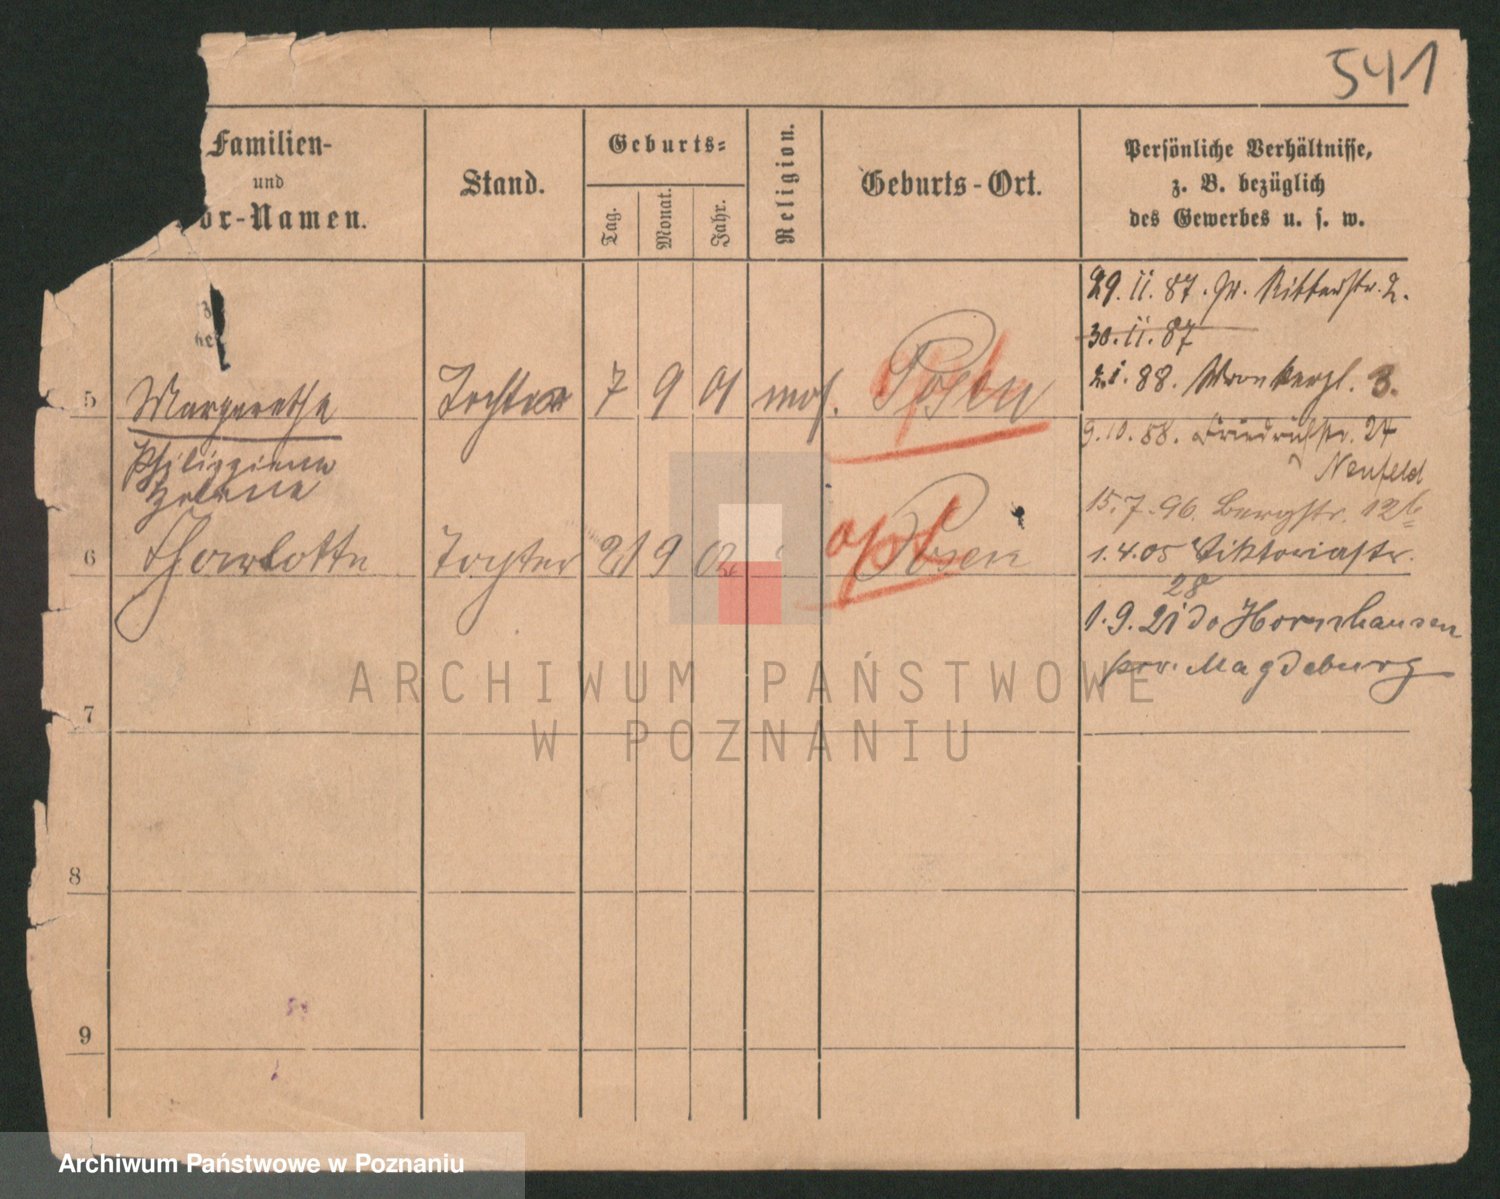 541
Familien-
und
or-Namen.
Stand.
Geburts-
Tag.
Monat.
Jahr.
Religion.
Geburts-Ort.
Persönliche Verhältnisse,
z. B. bezüglich
des Gewerbes u. s. w.
29. 11. 87. Gr. Ritterstr. 2.
30. 11. 87
2. 1. 88. Wronkerpl. 3.
5 Margarethe Tochter 7 9 01 mos. Posen
9. 10. 88. Friedrichstr. 27
Neufeld
Philippine
Helene
15. 7. 96. Bergstr. 12b
6 Charlotte Tochter 21 9 02 Posen
opt
1. 4. 05 Viktoriastr.
28
1. 9. 21 do Hornhausen
prov. Magdeburg
7
8
9
ARCHIWUM PAŃSTWOWE
W POZNANIU
Archiwum Państwowe w Poznaniu